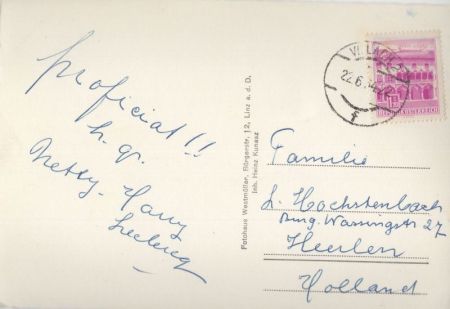 proficiat!!
h. gr.
Netty - Harry
Leclercq
Fotohaus Westmüller, Bürgerstr. 12, Linz a. d. D.
Inh. Heinz Kunasz
VILLACH
22.6.
f
REPUBLIK ÖSTERREICH
Familie
L. Hochstenbach
Burg. Wassingstr 27
Heerlen
Holland